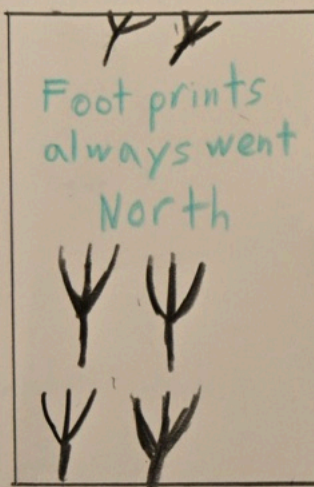 Foot prints
always went
North